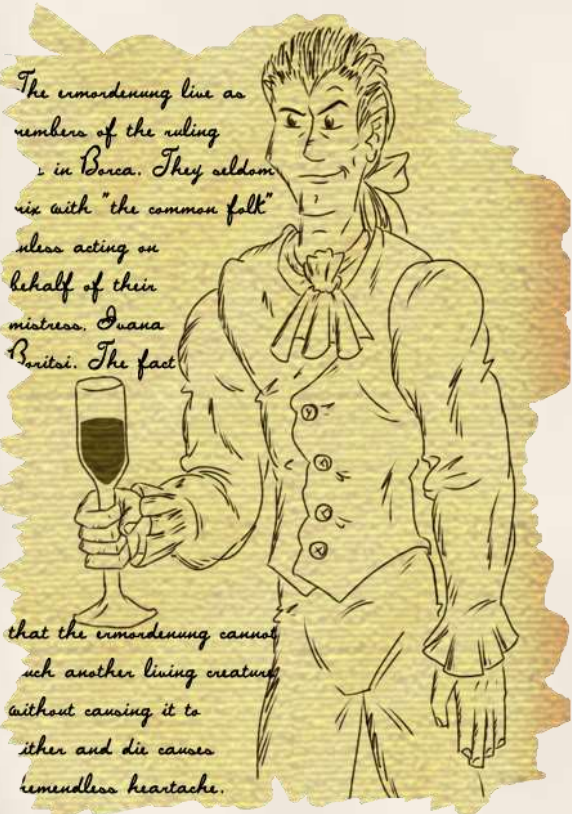 The ermordenung live as
members of the ruling
in Borca. They seldom
mix with "the common folk"
unless acting on
behalf of their
mistress, Ivana
Boritsi. The fact
that the ermordenung cannot
uch another living creature
without causing it to
ither and die causes
remendless heartache.